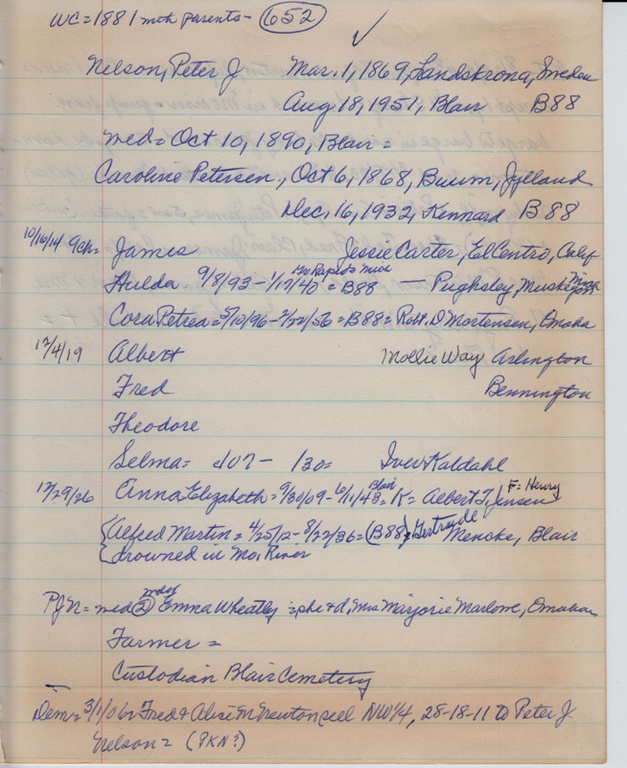 WC=1881 with parents- 652
Nelson, Peter J. Mar. 1, 1869, Landskrona, Sweden
Aug 18, 1951, Blair B88
med= Oct 10, 1890, Blair=
Caroline Petersen, Oct 6, 1868, Buum, Jylland
Dec, 16, 1932, Kennard B88
10/16/14 9ch= James Jessie Carter, El Centro, Calif
Hulda 9/8/93-1/17/42=B88 - Pughsley, Muskegon
Cora Petrea=5/10/96-2/22/56=B88=Robt. D Mortensen, Omaha
12/4/19 Albert Mollie Way Arlington
Fred Bennington
Theodore
Selma= Iver Kaldahl
12/29/26 Anna Elizabeth=9/30/09-6/1/43=Blair K= Albert T. Jensen F=Henry
Alfred Martin=4/25/12-8/22/36=(B88)=Gertrude Mencke, Blair
drowned in Mo, River
PJN=med 2 Emma Wheatley =she+d, Mrs Marjorie Marlowe, Omaha
Farmer=
Custodian Blair Cemetery
Dem=3/1/06= Fred & Alice M Newton sell NW1/4, 28-18-11 to Peter J
Nelson= (9KN?)